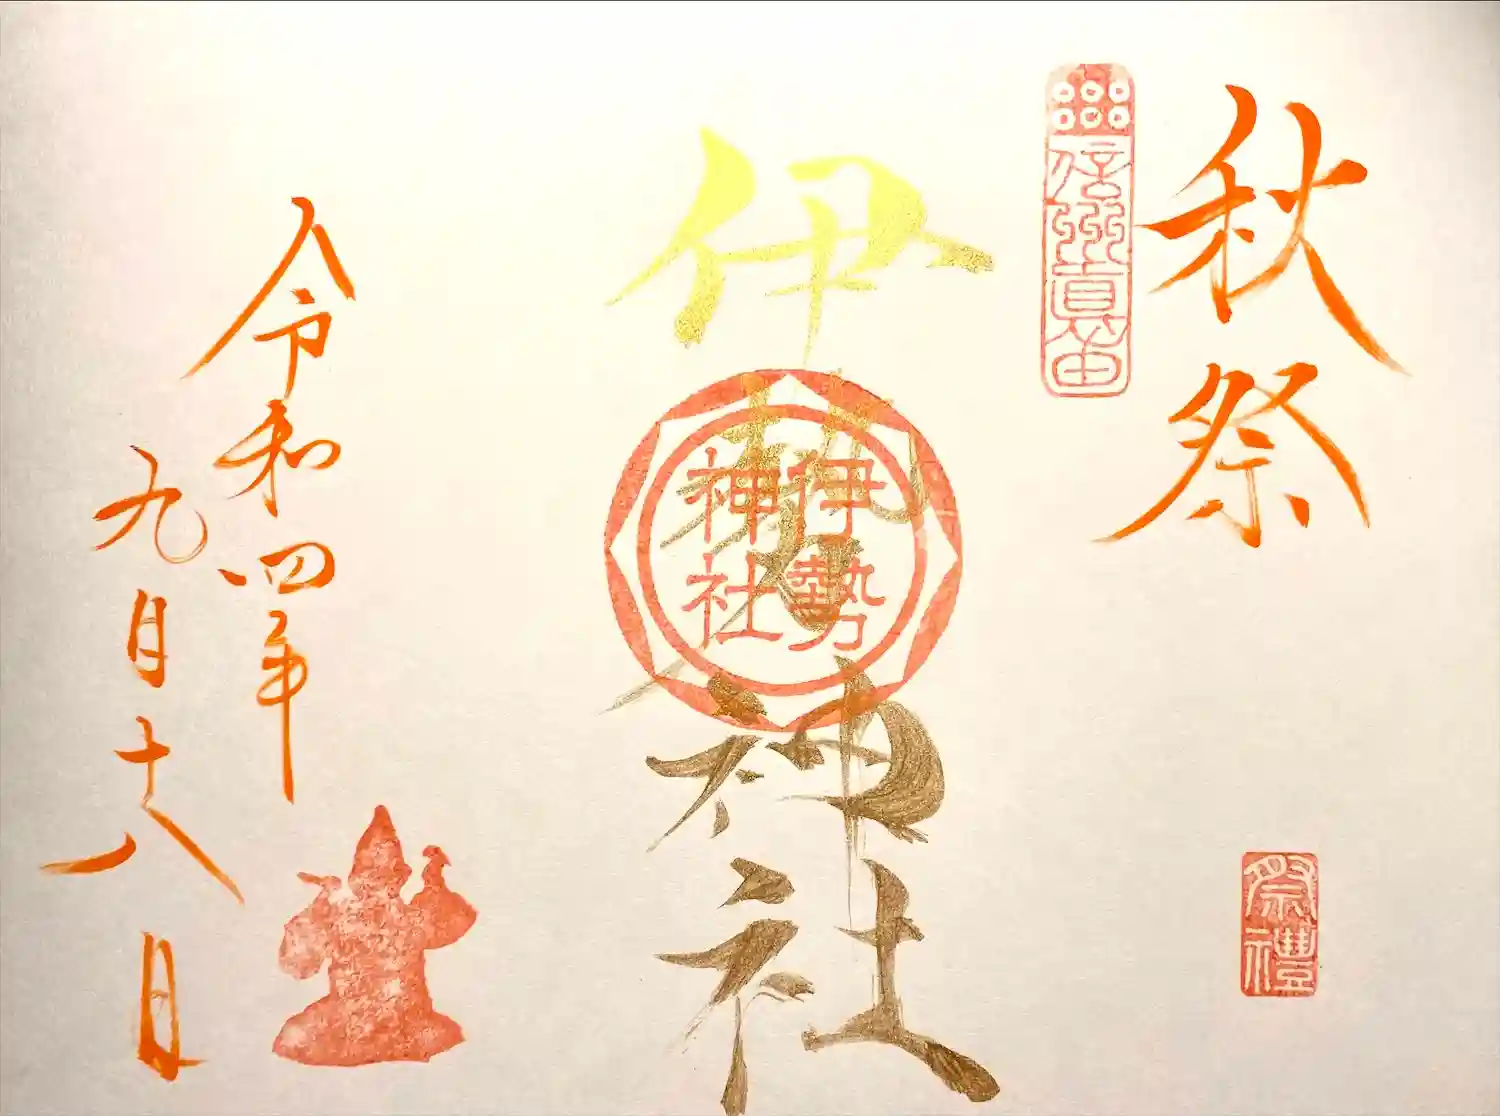 秋祭
祭禮
信州真田
伊勢神社
伊勢
神社
令和四年
九月十八日